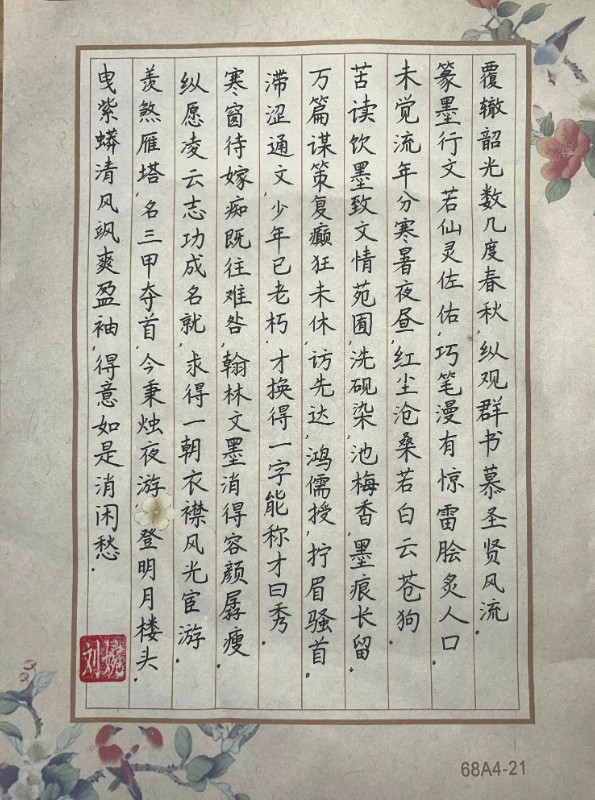 覆辙韶光数几度春秋,纵观群书慕圣贤风流.
篆墨行文若仙灵佐佑,巧笔漫有惊雷脍炙人口.
未觉流年分寒暑夜昼,红尘沧桑若白云苍狗.
苦读饮墨致文情苑囿,洗砚染,池梅香,墨痕长留.
万篇谋策复癫狂未休,访先达,鸿儒授,拧眉骚首.
滞涩通文,少年已老朽.才换得一字能称才曰秀.
寒窗待嫁痴既往难咎,翰林文墨消得容颜孱瘦.
纵愿凌云志功成名就,求得一朝衣襟风光宦游.
羡煞雁塔,名三甲夺首,今秉烛夜游,登明月楼头.
曳紫蟒清风飒爽盈袖,得意如是消闲愁.
刘婉
68A4-21